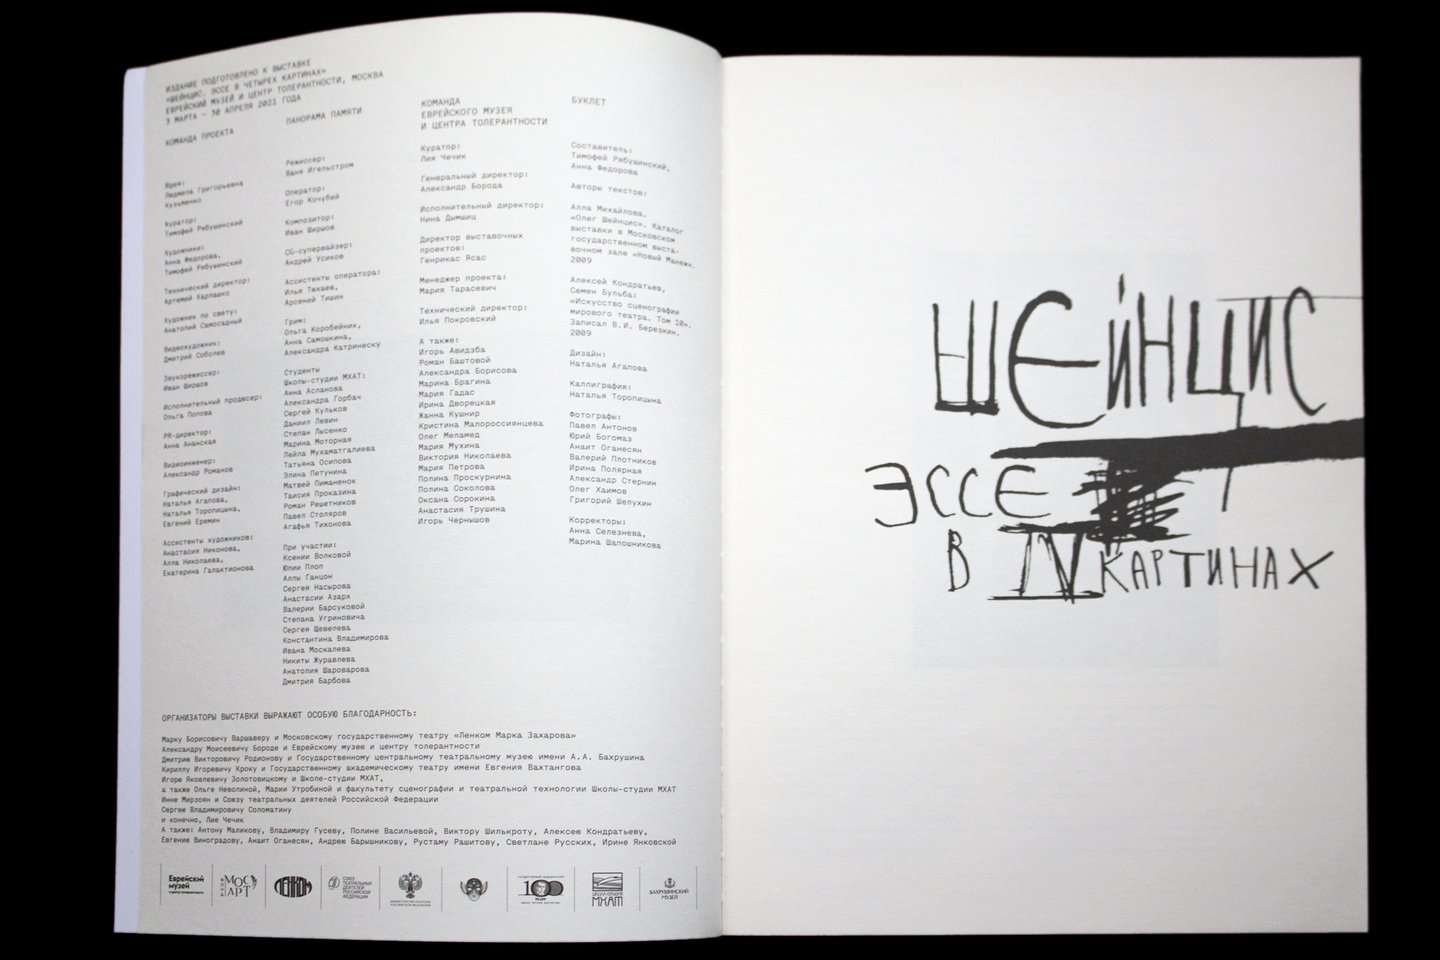 ИЗДАНИЕ ПОДГОТОВЛЕНО К ВЫСТАВКЕ
«ШЕЙНЦИС. ЭССЕ В ЧЕТЫРЕХ КАРТИНАХ»
ЕВРЕЙСКИЙ МУЗЕЙ И ЦЕНТР ТОЛЕРАНТНОСТИ, МОСКВА
3 МАРТА — 30 АПРЕЛЯ 2021 ГОДА
КОМАНДА ПРОЕКТА
Идея:
Людмила Григорьевна
Кузьменко
Куратор:
Тимофей Рябушинский
Художники:
Анна Федорова,
Тимофей Рябушинский
Технический директор:
Артемий Харлашко
Художник по свету:
Анатолий Самосадный
Видеохудожник:
Дмитрий Соболев
Звукорежиссер:
Иван Ширшов
Исполнительный продюсер:
Ольга Попова
PR-директор:
Анна Ананская
Видеоинженер:
Александр Романов
Графический дизайн:
Наталья Агапова,
Наталья Торопицына,
Евгений Еремин
Ассистенты художников:
Анастасия Никонова,
Алла Николаева,
Екатерина Галактионова
ПАНОРАМА ПАМЯТИ
Режиссер:
Ваня Игельстром
Оператор:
Егор Кочубей
Композитор:
Иван Ширшов
CG-супервайзер:
Андрей Усиков
Ассистенты оператора:
Илья Техаев,
Арсений Тишин
Грим:
Ольга Коробейник,
Анна Самошкина,
Александра Катринеску
Студенты
Школы-студии МХАТ:
Анна Асланова
Александра Горбач
Сергей Кульков
Даниил Левин
Степан Лысенко
Марина Моторная
Лейла Мухаматгалиева
Татьяна Осипова
Элина Петунина
Матвей Пиманенок
Таисия Проказина
Роман Решетников
Павел Столяров
Агафья Тихонова
При участии:
Ксении Волковой
Юлии Плоп
Аллы Ганцон
Сергея Насырова
Анастасии Азарх
Валерии Барсуковой
Степана Угриновича
Сергея Щевелева
Константина Владимирова
Ивана Москалева
Никиты Журавлева
Анатолия Шароварова
Дмитрия Барбова
КОМАНДА
ЕВРЕЙСКОГО МУЗЕЯ
И ЦЕНТРА ТОЛЕРАНТНОСТИ
Куратор:
Лия Чечик
Генеральный директор:
Александр Борода
Исполнительный директор:
Нина Дымшиц
Директор выставочных
проектов:
Генрикас Ясас
Менеджер проекта:
Мария Тарасевич
Технический директор:
Илья Покровский
А также:
Игорь Авидзба
Роман Баштовой
Александра Борисова
Марина Брагина
Мария Гадас
Ирина Дворецкая
Жанна Кушнир
Кристина Малороссиянцева
Олег Меламед
Мария Мухина
Виктория Николаева
Мария Петрова
Полина Проскурнина
Полина Соколова
Оксана Сорокина
Анастасия Трушина
Игорь Чернышов
БУКЛЕТ
Составитель:
Тимофей Рябушинский,
Анна Федорова
Авторы текстов:
Алла Михайлова.
«Олег Шейнцис». Каталог
выставки в Московском
государственном выста-
вочном зале «Новый Манеж».
2009
Алексей Кондратьев,
Семен Бульба:
«Искусство сценографии
мирового театра. Том 10».
Записал В.И. Березкин.
2009
Дизайн:
Наталья Агапова
Каллиграфия:
Наталья Торопицына
Фотографы:
Павел Антонов
Юрий Богомаз
Анаит Оганесян
Валерий Плотников
Ирина Полярная
Александр Стернин
Олег Хаимов
Григорий Шелухин
Корректоры:
Анна Селезнева,
Марина Шапошникова
ОРГАНИЗАТОРЫ ВЫСТАВКИ ВЫРАЖАЮТ ОСОБУЮ БЛАГОДАРНОСТЬ:
Марку Борисовичу Варшаверу и Московскому государственному театру «Ленком Марка Захарова»
Александру Моисеевичу Бороде и Еврейскому музею и центру толерантности
Дмитрию Викторовичу Родионову и Государственному центральному театральному музею имени А.А. Бахрушина
Кириллу Игоревичу Кроку и Государственному академическому театру имени Евгения Вахтангова
Игорю Яковлевичу Золотовицкому и Школе-студии МХАТ,
а также Ольге Неволиной, Марии Утробиной и факультету сценографии и театральной технологии Школы-студии МХАТ
Инне Мирзоян и Союзу театральных деятелей Российской Федерации
Сергею Владимировичу Соломатину
и конечно, Лие Чечик
А также: Антону Маликову, Владимиру Гусеву, Полине Васильевой, Виктору Шилькроту, Алексею Кондратьеву,
Евгению Виноградову, Анаит Оганесян, Андрею Барышникову, Рустаму Рашитову, Светлане Русских, Ирине Янковской
Еврейский
музей
и центр толерантности
ФОНД
МОСАРТ
ЛЕНКОМ
СОЮЗ
ТЕАТРАЛЬНЫХ
ДЕЯТЕЛЕЙ
РОССИЙСКОЙ
ФЕДЕРАЦИИ
МИНИСТЕРСТВО КУЛЬТУРЫ
РОССИЙСКОЙ ФЕДЕРАЦИИ
100
МХАТ
БАХРУШИНСКИЙ
МУЗЕЙ
ШЕЙНЦИС
ЭССЕ
В IV КАРТИНАХ